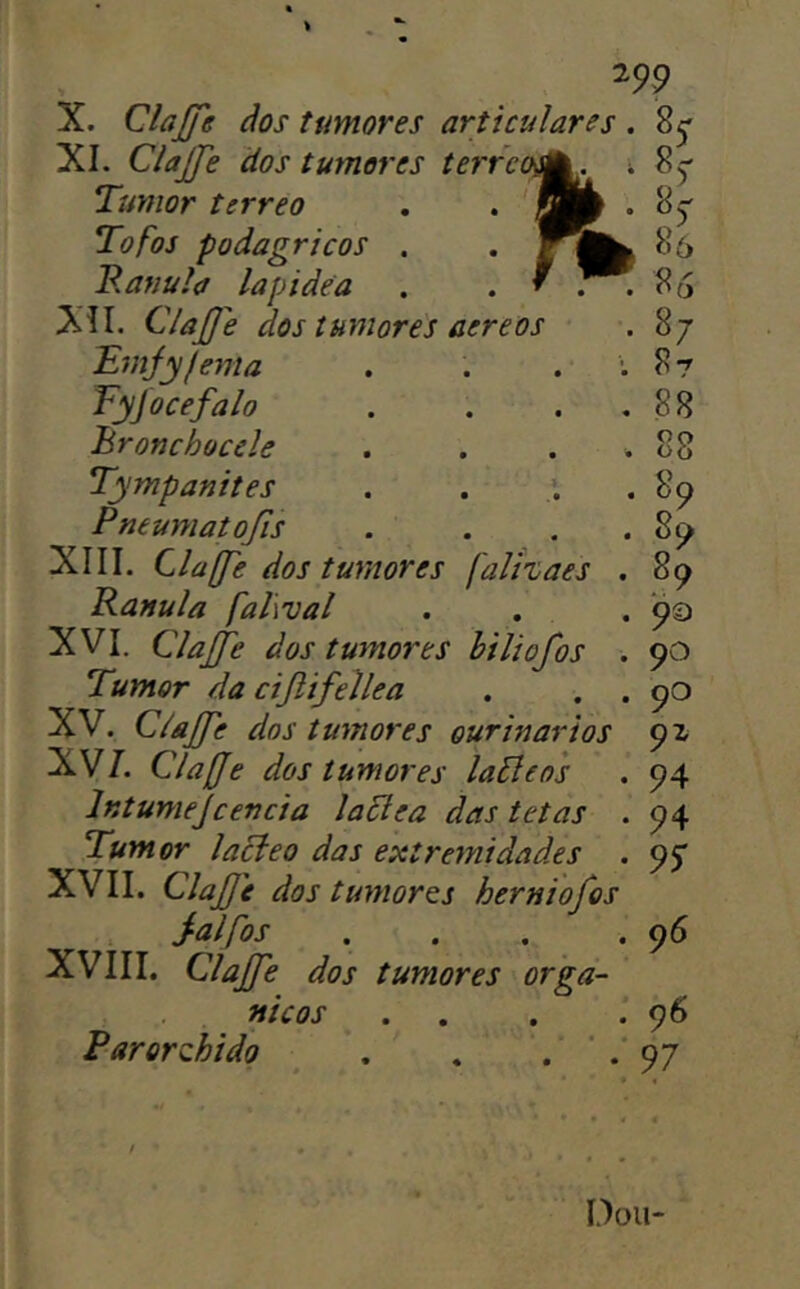 299
X. Claſſe dos tumores articulares . 85
XI. Claſſe dos tumores terreos . . 85
Tumor terreo . . . 85
Tofos podagricos . . 86
Ranula lapidea . . . . 86
XII. Claſſe dos tumores aereos . 87
Emfyſema . . . . 87
Fyſocefalo . . . . 88
Bronchocele . . . . 88
Tympanites . . . . 89
Pneumatoſis . . . . 89
XIII. Claſſe dos tumores ſalivaes . 89
Ranula ſalival . . . 90
XVI. Claſſe dos tumores bilioſos . 90
Tumor da ciſtifellea . . . 90
XV. Claſſe dos tumores ourinarios 92
XVI. Claſſe dos tumores lacteos . 94
Intumeſcencia lactea das tetas . 94
Tumor lacteo das extremidades . 95
XVII. Claſſe dos tumores hernioſos
falſos . . . . 96
XVIII. Claſſe dos tumores orga-
nicos . . . . 96
Parorchido . . . . 97
Dou-